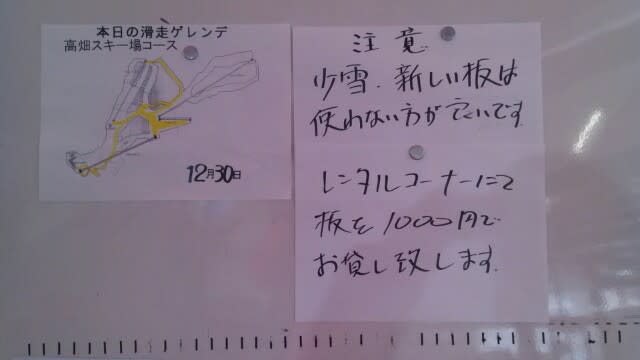 本日の滑走ゲレンデ
高畑スキー場コース
12月30日
注意
少雪.新しい板は
使わない方が良いです
レンタルコーナーにて
板を1000円で
お貸し致します.